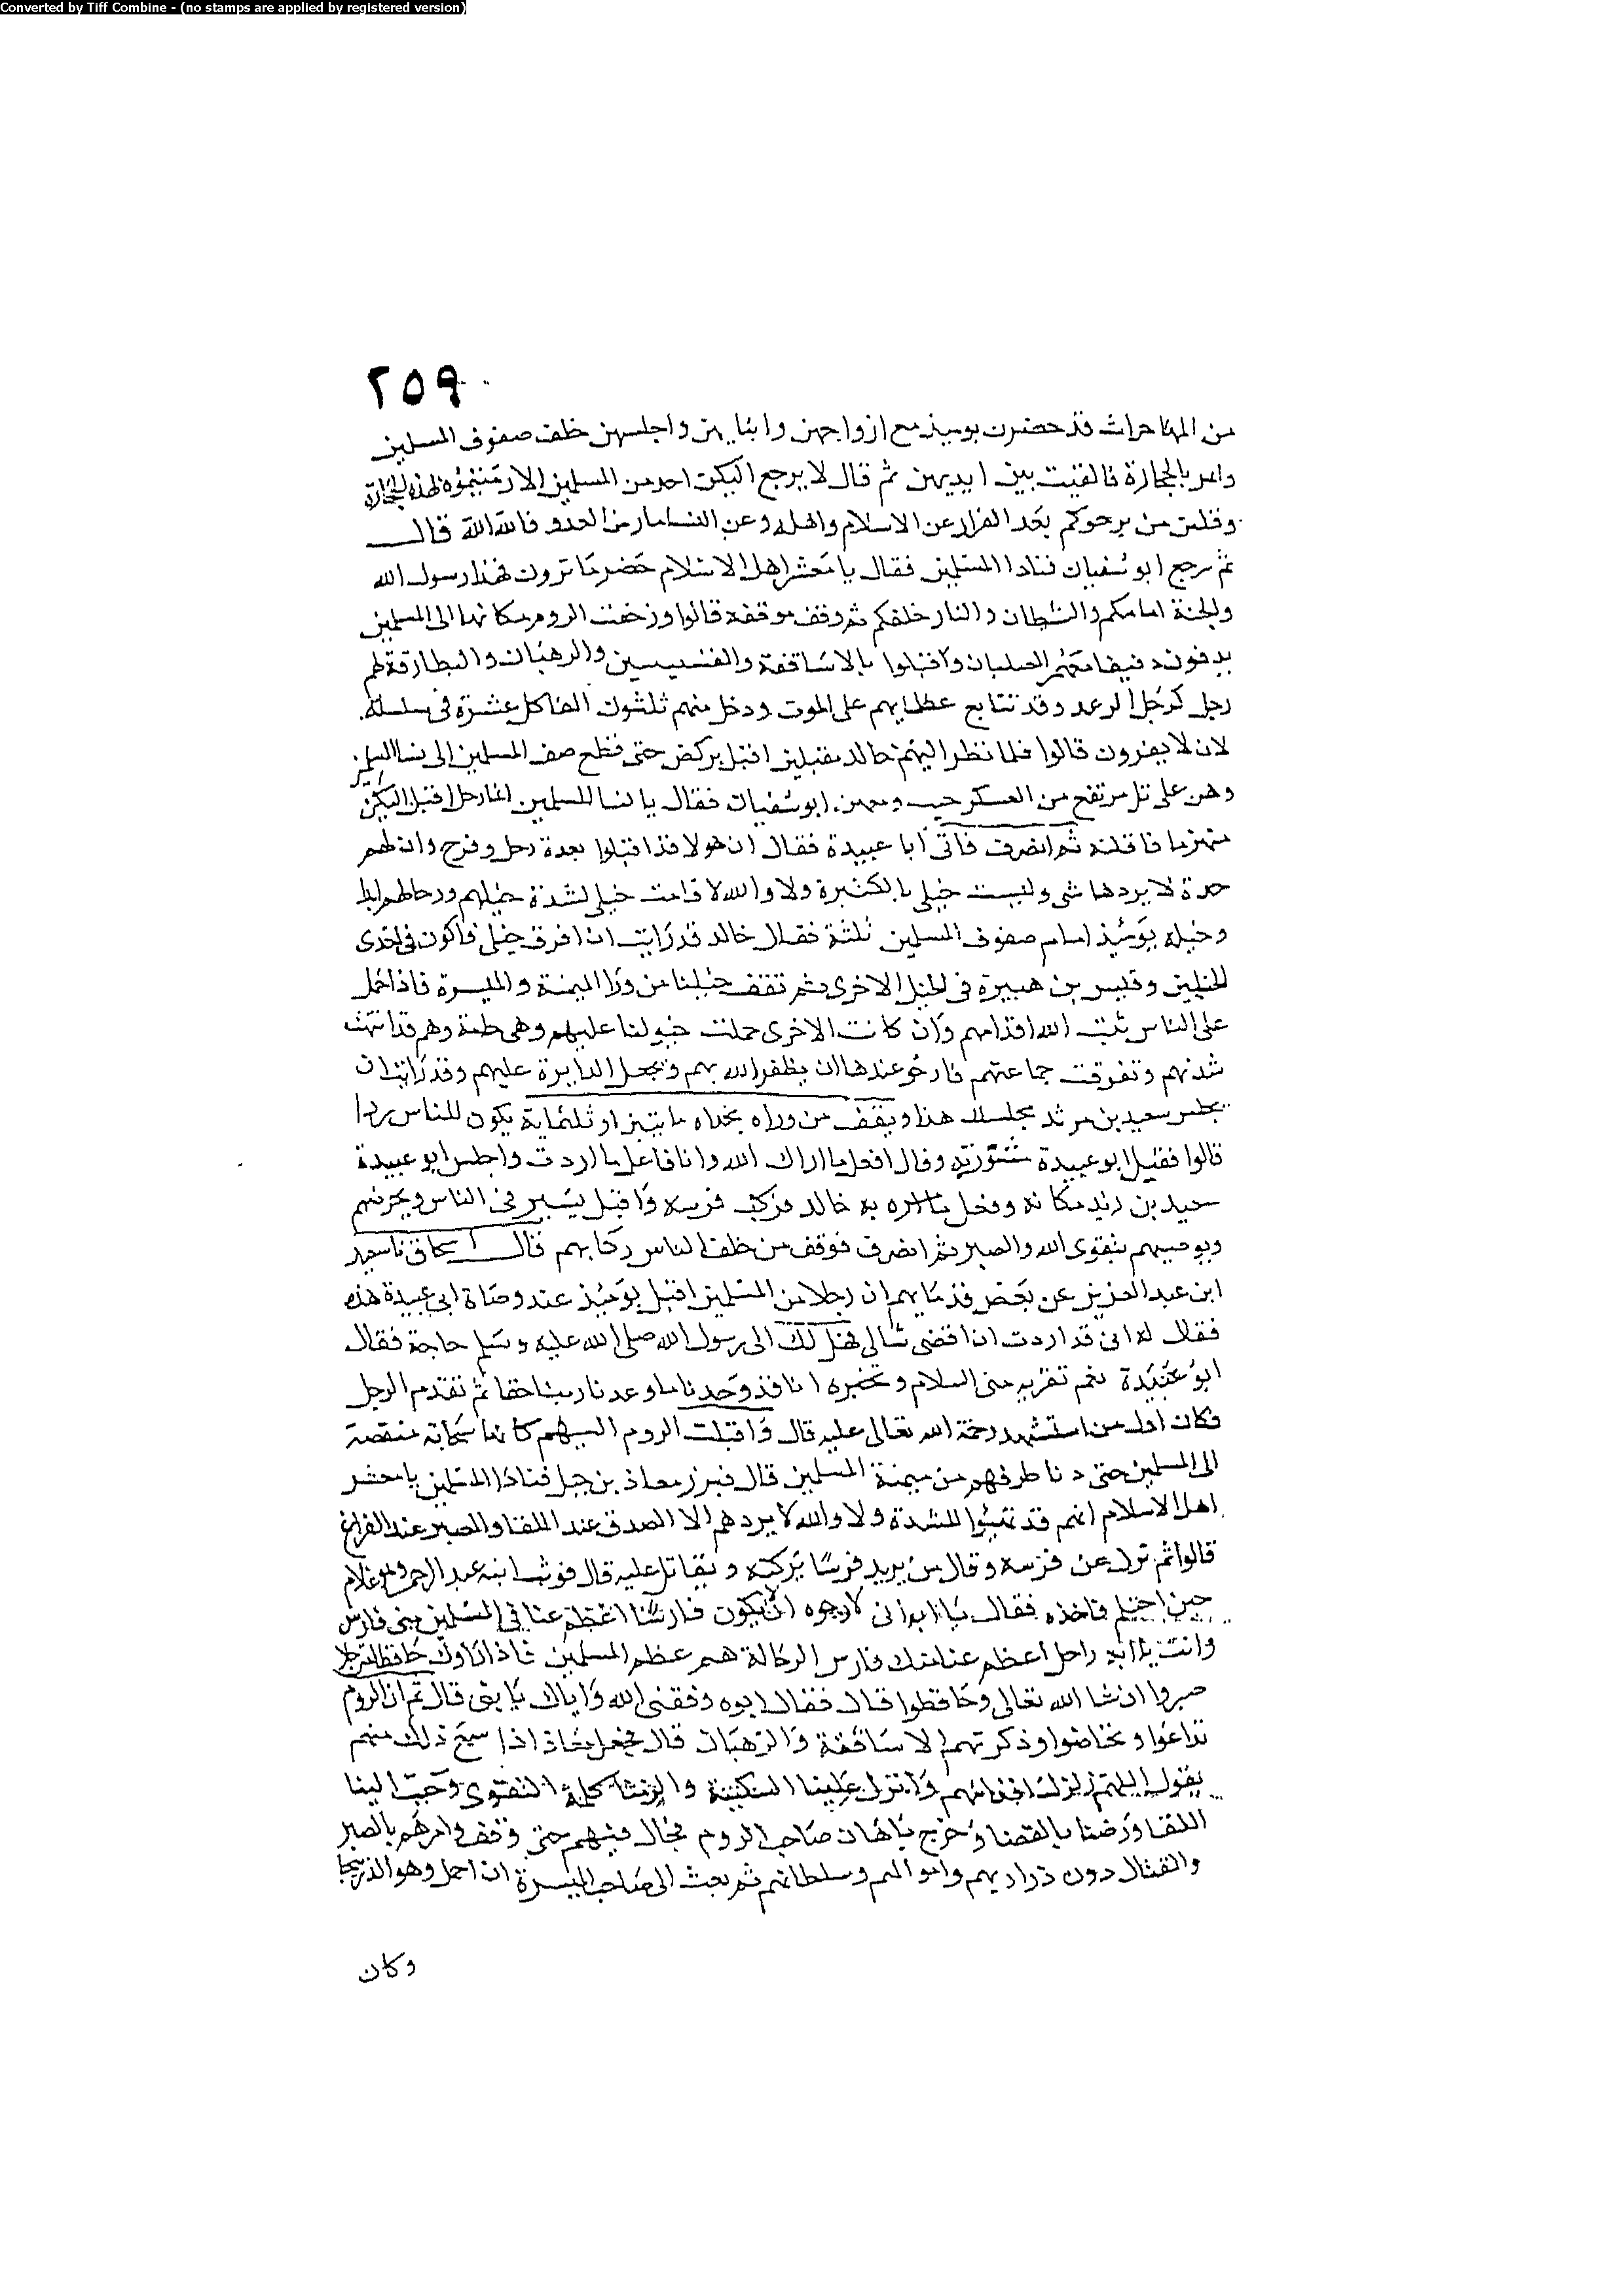 Converted by Tiff Combine - (no stamps are applied by registered version)
٢٥٩
من المهاجرات قد حضرت يوميذ مع ازواجهن وابنايهن واجلسهن خلف صفوف المسلمين
وامر بالحجارة فالقيت بين ايديهن ثم قال لا يرجع اليكن احد من المسلمين الا رميتموه بهذه الحجارة
وقلتن من يرجوكم بعد الفرار عن الاسلام واهله وعن النسا من العدو فالله الله قال
ثم رجع ابو سفيان فنادا المسلمين فقال يا معشر اهل الاسلام حضر ما ترون فهذا رسول الله
والجنة امامكم والشيطان والنار خلفكم ثم وقف موقفه قالوا وزحفت الروم مكانها الى المسلمين
يدفون دفيفا معهم الصلبان واقبلوا بالاساقفة والقسيسين والرهبان والبطارقة لهم
زجل كزجل الرعد وقد تتابع عظمايهم على الموت ودخل منهم ثلثون الفا كل عشرة فى سلسلة
لان لا يفرون قالوا فلما نظر اليهم خالد مقبلين اقبل يركض حتى قطع صف المسلمين الى نسا المسلمين
وهن على تل مرتفع من العسكر حيث ومعهن ابو سفيان فقال يا نسا المسلمين ايما رجل اقبل اليكن
منهزما فاقتلنه ثم انصرف فاتى أبا عبيدة فقال ان هولا قد اقبلوا بعدة رجل وفرح وان لهم
حدة لا يردها شى وليست خيلى بالكثيرة ولا والله لا قامت خيلى لشدة خيلهم ورجالهم ابدا
وخيله يوميذ امام صفوف المسلمين ثلثة فقال خالد قد رايت ان افرق خيلى فاكون فى احدى
الخيلين وقيس بن هبيرة فى الخيل الاخرى ثم تقف خيلنا من ورا الميمنة والميسرة فاذا حمل
على الناس ثبت الله اقدامهم وان كانت الاخرى حملت خيولنا عليهم وهى جامة وهم قد انتهت
شدتهم وتفرقت جماعتهم فارجو عندها ان يظفر الله بهم ويجعل الدايرة عليهم وقد رايت ان
يجلس سعيد بن مرثد مجلسك هذا ويقف من وراه بحذاه مايتين او ثلثماية يكون للناس ردا
قالوا فقبل ابو عبيدة مشورته وقال افعل ما اراك الله وانا فاعل ما اردت واجلس ابو عبيدة
سعيد بن زيد مكانه وفعل ما امره به خالد فركب فرسه واقبل يسير فى الناس ويحرضهم
ويوصيهم بتقوى الله والصبر ثم انصرف فوقف من خلف الناس ردا بهم قال اسحاق نا سعيد
ابن عبد العزيز عن بعض قدمايهم ان رجلا من المسلمين اقبل يوميذ عند وصاة ابى عبيدة هذه
فقال له انى قد اردت ان اقضى شانى فهل لك الى رسول الله صلى الله عليه وسلم حاجة فقال
ابو عبيدة نعم تقريه منى السلام وتخبره انا قد وجدنا ما وعدنا ربنا حقا ثم تقدم الرجل
فكان اول من استشهد رحمة الله تعالى عليه قال واقبلت الروم اليهم كانها سحابة منقصة
الى المسلمين حتى دنا طرفهم من ميمنة المسلمين قال فبرز معاذ بن جبل فنادا المسلمين يا معشر
اهل الاسلام انهم قد تهيئوا للشدة ولا والله لا يردهم الا الصدق عند اللقا والصبر عند القراع
قالوا ثم نزل عن فرسه وقال من يريد فرسا يركبه ويقاتل عليه قال فوثب ابنه عبد الرحمن وهو غلام
حين احتلم فاخذه فقال يا ابه انى لارجوه ان اكون فارسا اعظم عنا فى المسلمين منى فارس
وانت يا ابه راجل اعظم عنا منك فارس الرجالة هم عظم المسلمين فاذا راوك حافظا مترجلا
صبروا ان شا الله تعالى وحافظوا قال فقال ابوه وفقنى الله واياك يا بنى قال ثم ان الروم
تداعوا وتحاضوا وذكرتهم الاساقفة والرهبان قال فجعل معاذ اذا سمع ذلك منهم
يقول اللهم زلزل اقدامهم وانزل علينا السكينة والزمنا كلمة التقوى وحبب الينا
اللقا ورضنا بالقضا وخرج باهان صاحب الروم فجال فيهم حتى وقف وامرهم بالصبر
والقتال دون ذراريهم واموالهم وسلطانهم ثم بعث الى صاحب الميسرة ان احمل وهو الدريجا
وكان